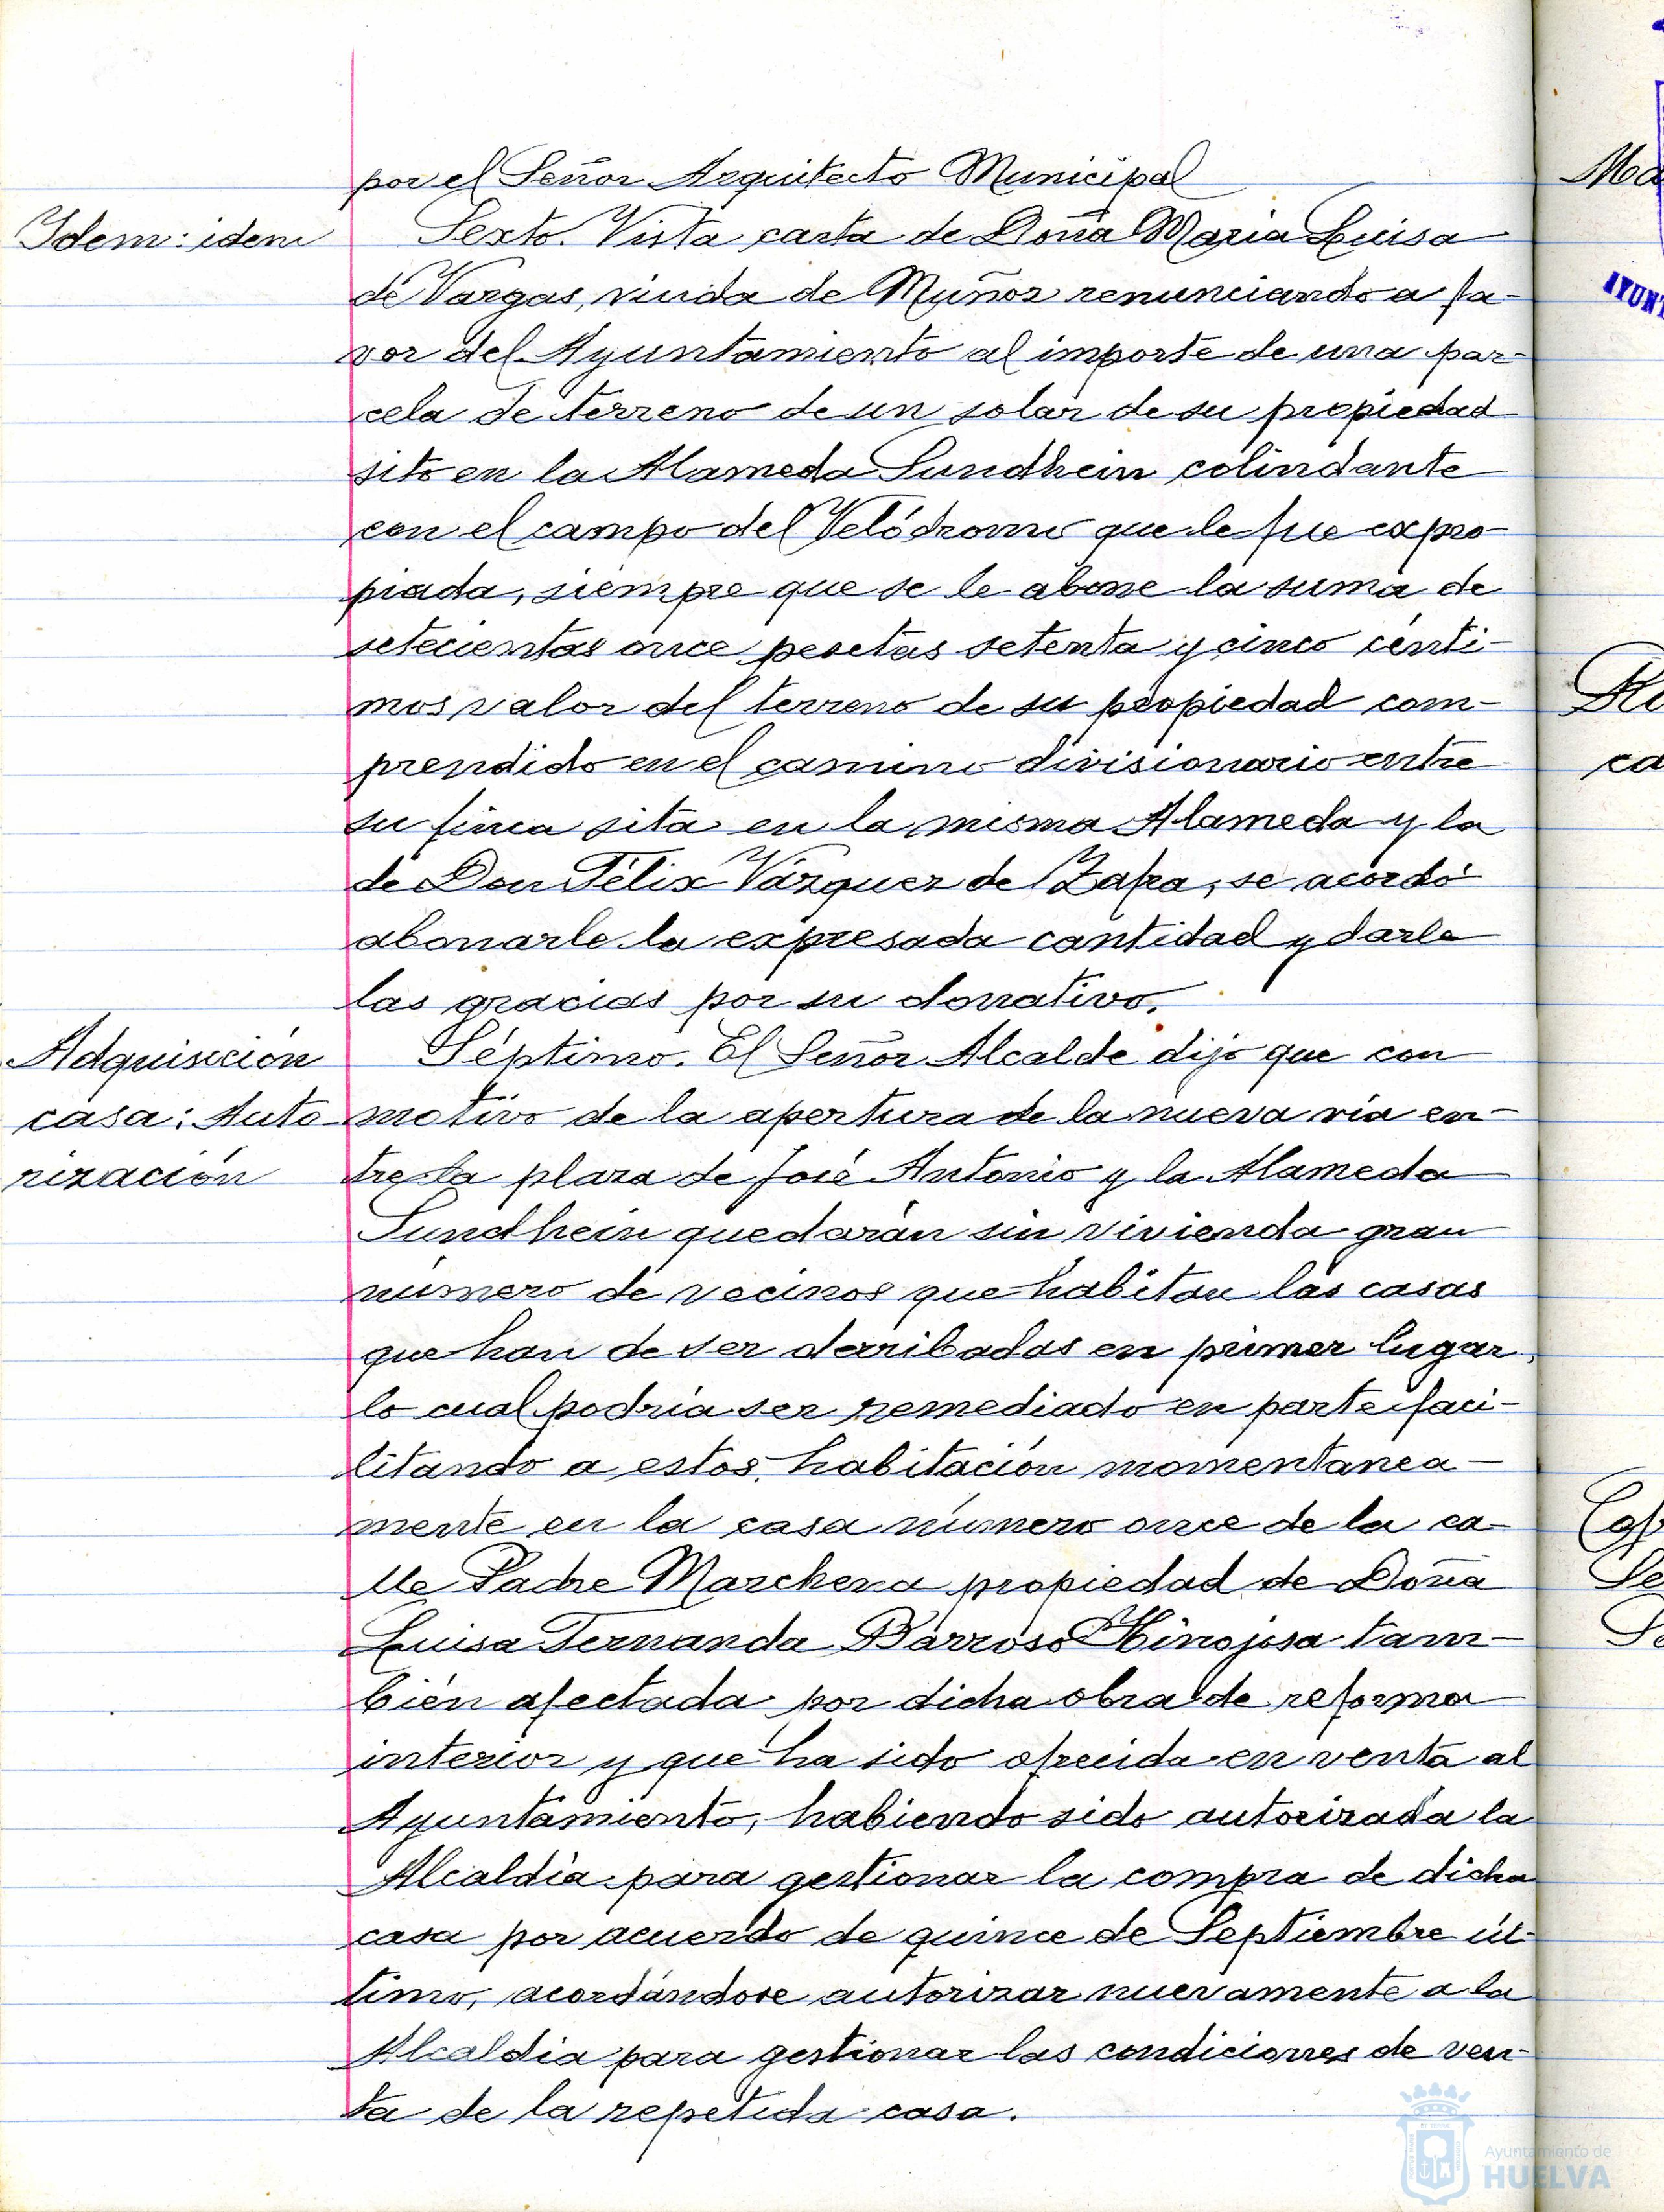 por el Señor Arquitecto Municipal
Idem: idem
Sexto. Vista carta de Doña Maria Luisa
de Vargas, viuda de Muñoz renunciando a fa-
vor del Ayuntamiento al importe de una par-
cela de terreno de un solar de su propiedad
sito en la Alameda Sundhein colindante
con el campo del Velódromo que le fue expro-
piada, siempre que se le abone la suma de
setecientas once pesetas setenta y cinco centi-
mos valor del terreno de su propiedad com-
prendido en el camino divisionario entre
su finca sita en la misma Alameda y la
de Don Félix Vázquez de Zafra, se acordó
abonarle la expresada cantidad y darle
las gracias por su donativo.
Adquisición
casa: Auto-
rización
Séptimo. El Señor Alcalde dijo que con
motivo de la apertura de la nueva via en-
tre la plaza de José Antonio y la Alameda
Sundhein quedarán sin vivienda gran
número de vecinos que habitan las casas
que han de ser derribadas en primer lugar,
lo cual podría ser remediado en parte faci-
litando a estos, habitación momentanea-
mente en la casa número once de la ca-
lle Padre Marchena propiedad de Doña
Luisa Fernanda Barroso Hinojosa tam-
bién afectada por dicha obra de reforma
interior y que ha sido ofrecida en venta al
Ayuntamiento, habiendo sido autorizada la
Alcaldía para gestionar la compra de dicha
casa por acuerdo de quince de Septiembre úl-
timo, acordándose autorizar nuevamente a la
Alcaldia para gestionar las condiciones de ven-
ta de la repetida casa.
Ayuntamiento de
HUELVA